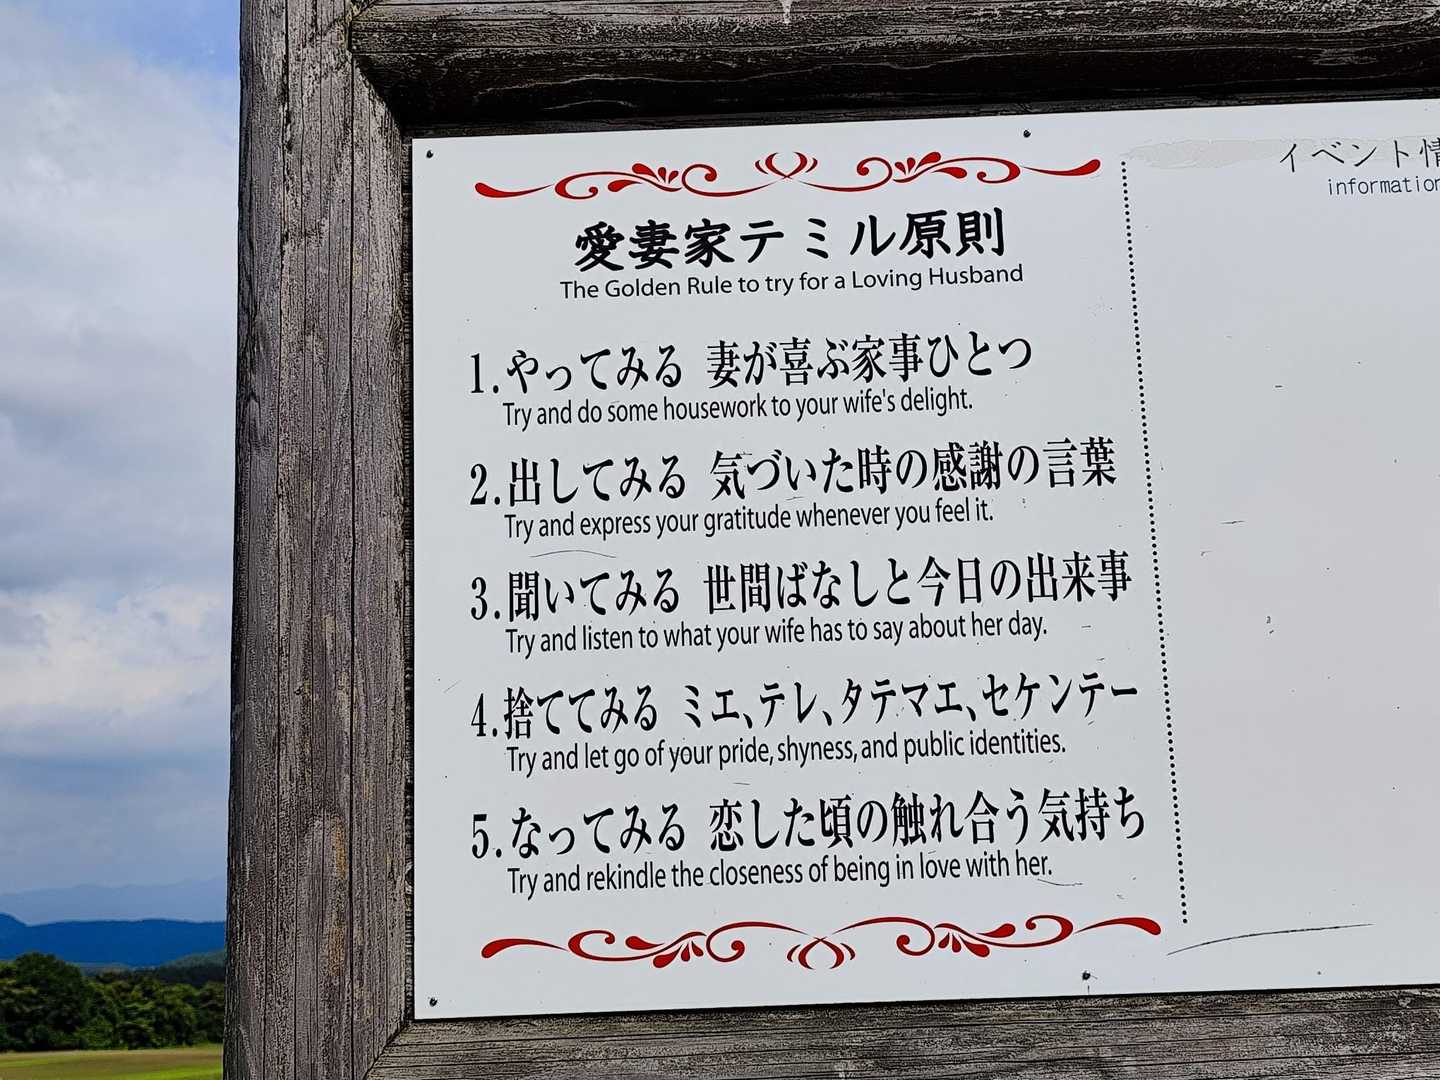 愛妻家テミル原則
The Golden Rule to try for a Loving Husband
1.やってみる 妻が喜ぶ家事ひとつ
Try and do some housework to your wife's delight.
2.出してみる 気づいた時の感謝の言葉
Try and express your gratitude whenever you feel it.
3.聞いてみる 世間ばなしと今日の出来事
Try and listen to what your wife has to say about her day.
4.捨ててみる ミエ、テレ、タテマエ、セケンテー
Try and let go of your pride, shyness, and public identities.
5.なってみる 恋した頃の触れ合う気持ち
Try and rekindle the closeness of being in love with her.
イベント情
information